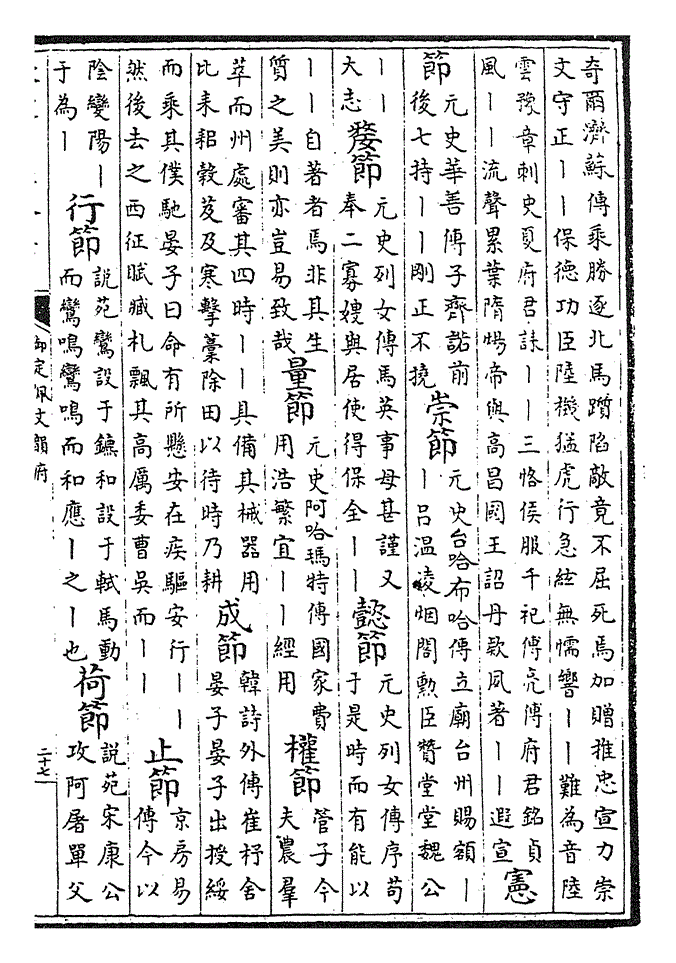 奇爾濟蘇傳乘勝逐北馬躓陷敵竟不屈死焉加贈推忠宣力崇
文守正丨丨保德功臣陸機猛虎行急絃無懦響丨丨難為音陸
雲豫章刺史夏府君誄丨丨三恪侯服千祀傅亮傅府君銘貞
風丨丨流聲累葉隋煬帝與高昌國王詔丹欵夙著丨丨遐宣
憲
節
元史華善傳子齊諾前
後七持丨丨剛正不撓
崇節
元史台哈布哈傳立廟台州賜額丨
丨呂温凌烟閣勲臣贊堂堂魏公
丨丨
大志
嫠節
元史列女傳馬英事母甚謹又
奉二寡嫂與居使得保全丨丨
懿節
元史列女傳序苟
于是時而有能以
丨丨自著者焉非其生
質之美則亦豈易致哉
量節
元史阿哈瑪特傳國家費
用浩繁宜丨丨經用
權節
管子今
夫農羣
萃而州處審其四時丨丨具備其械器用
比耒耜榖芨及寒擊藁除田以待時乃耕
成節
韓詩外傳崔杼舍
晏子晏子出授綏
而乘其僕馳晏子曰命有所懸安在疾驅安行丨丨
然後去之西征賦臧札飄其高厲委曹吳而丨丨
止節
京房易
傳今以
陰變陽丨
于為丨
行節
說苑鸞設于鑣和設于軾馬動
而鸞鳴鸞鳴而和應丨之丨也
荷節
說苑宋康公
攻阿屠單父
御定佩文韻府
二十七